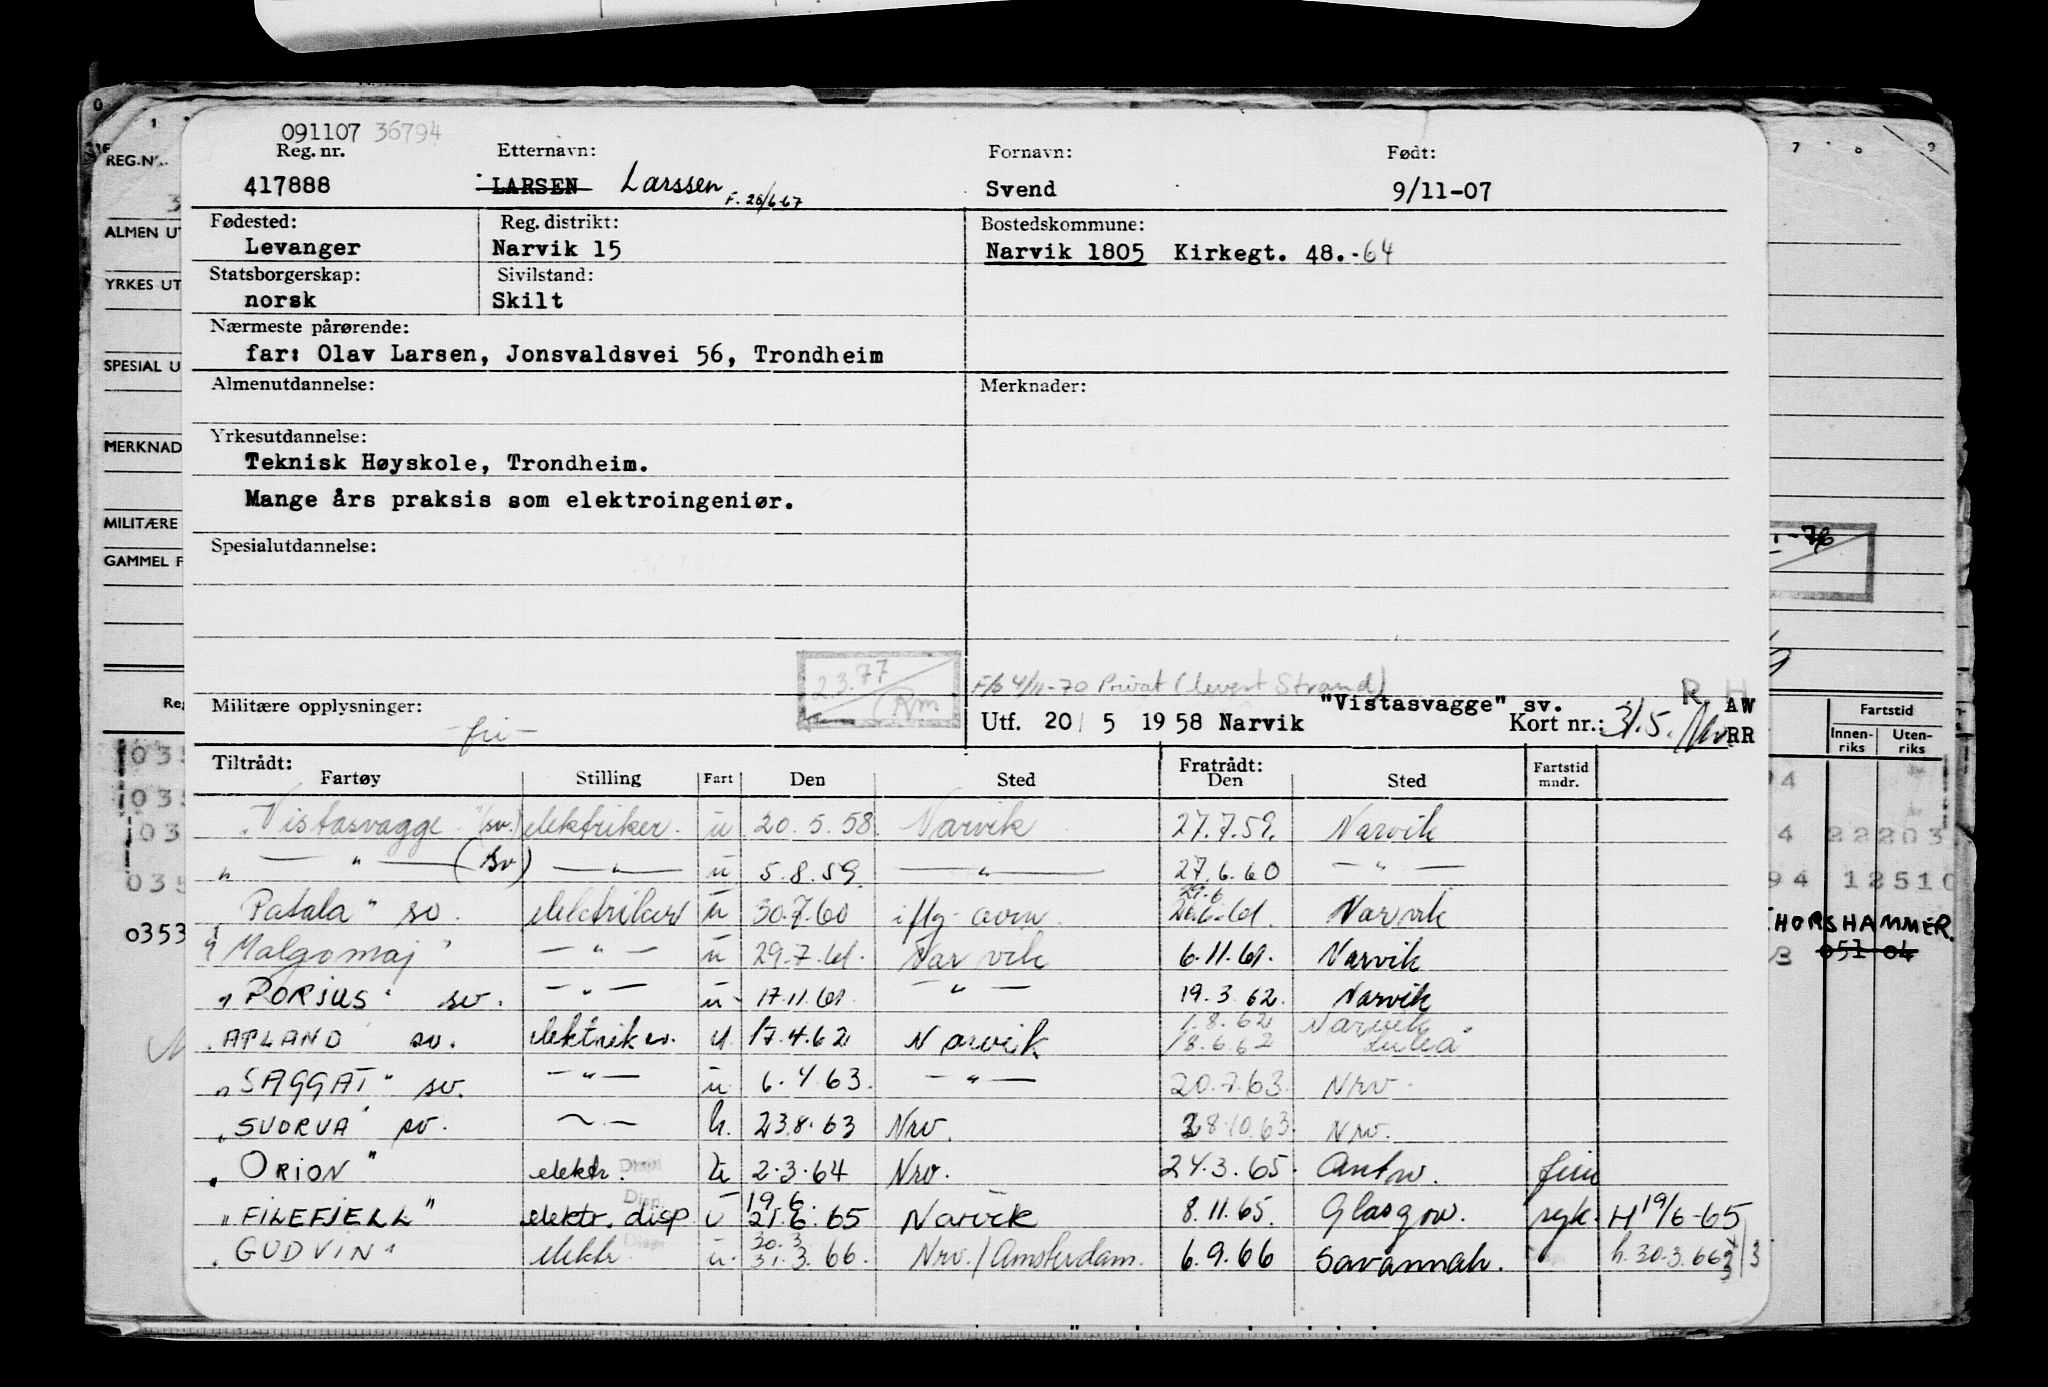 091107 36794
Reg. nr. Etternavn: Fornavn: Født:
417888 LARSEN Larssen F. 26/6-67 Svend 9/11-07
Fødested: Reg. distrikt: Bostedskommune:
Levanger Narvik 15 Narvik 1805 Kirkegt. 48.-64
Statsborgerskap: Sivilstand:
norsk Skilt
Nærmeste pårørende:
far: Olav Larsen, Jonsvaldsvei 56, Trondheim
Almenutdannelse: Merknader:
Yrkesutdannelse:
Teknisk Høyskole, Trondheim.
Mange års praksis som elektroingeniør.
Spesialutdannelse:
2.3.77 Rm
F/b 4/11-70 Privat (levert Strand)
R H
Militære opplysninger: "Vistasvagge" sv. AW
-fri- Utf. 20/ 5 1958 Narvik Kort nr.: 31.5. RR
Tiltrådt: Fratrådt:
Fartøy Stilling Fart Den Sted Den Sted Fartstid mndr.
"Vistasvagge" (sv.) elektriker. u 20.5.58. Narvik 27.7.59. Narvik
" — " — (sv) — " — u 5.8.59. — " — 27.6.60 — " —
Patala" sv. elektriker u 30.7.60 iflg. avm. 29.6 26.6.61. Narvik
"Malgomaj" — " — u 29.7.61. Narvik 6.11.61. Narvik
"PORJUS" sv. — " — u 17.11.61. — " — 19.3.62. Narvik
"APLAND sv. elektriker. u 17.4.62 Narvik 1.8.62 Narvik
18.6.62 Luleå
"SAGGAT" sv. — " — u 6.4.63. — " — 20.7.63. Nrv.
"SUORVA" sv. — " — u. 23.8.63 Nrv. 28.10.63. Nrv.
"ORION" elektr. u 2.3.64 Nrv. 24.3.65. Antw. ferie
"FILEFJELL" elektr. disp u 19.6. 21.6.65 Narvik 8.11.65. Glasgow. syk. H 19/6-65
"GUDVIN" elektr. u. 30.3 31.3.66. Nrv./Amsterdam. 6.9.66 Savannah. h. 30.3.66 3
REG.NR.
ALMEN UT
YRKES UT
SPESIAL U
MERKNAD
MILITÆRE
GAMMEL F
Reg
035
035
03
035
0353
7 8 9
-76
Fartstid
Innen-riks Uten-riks
94
4 22203
94 12510
THORSHAMMER.
3 051 04